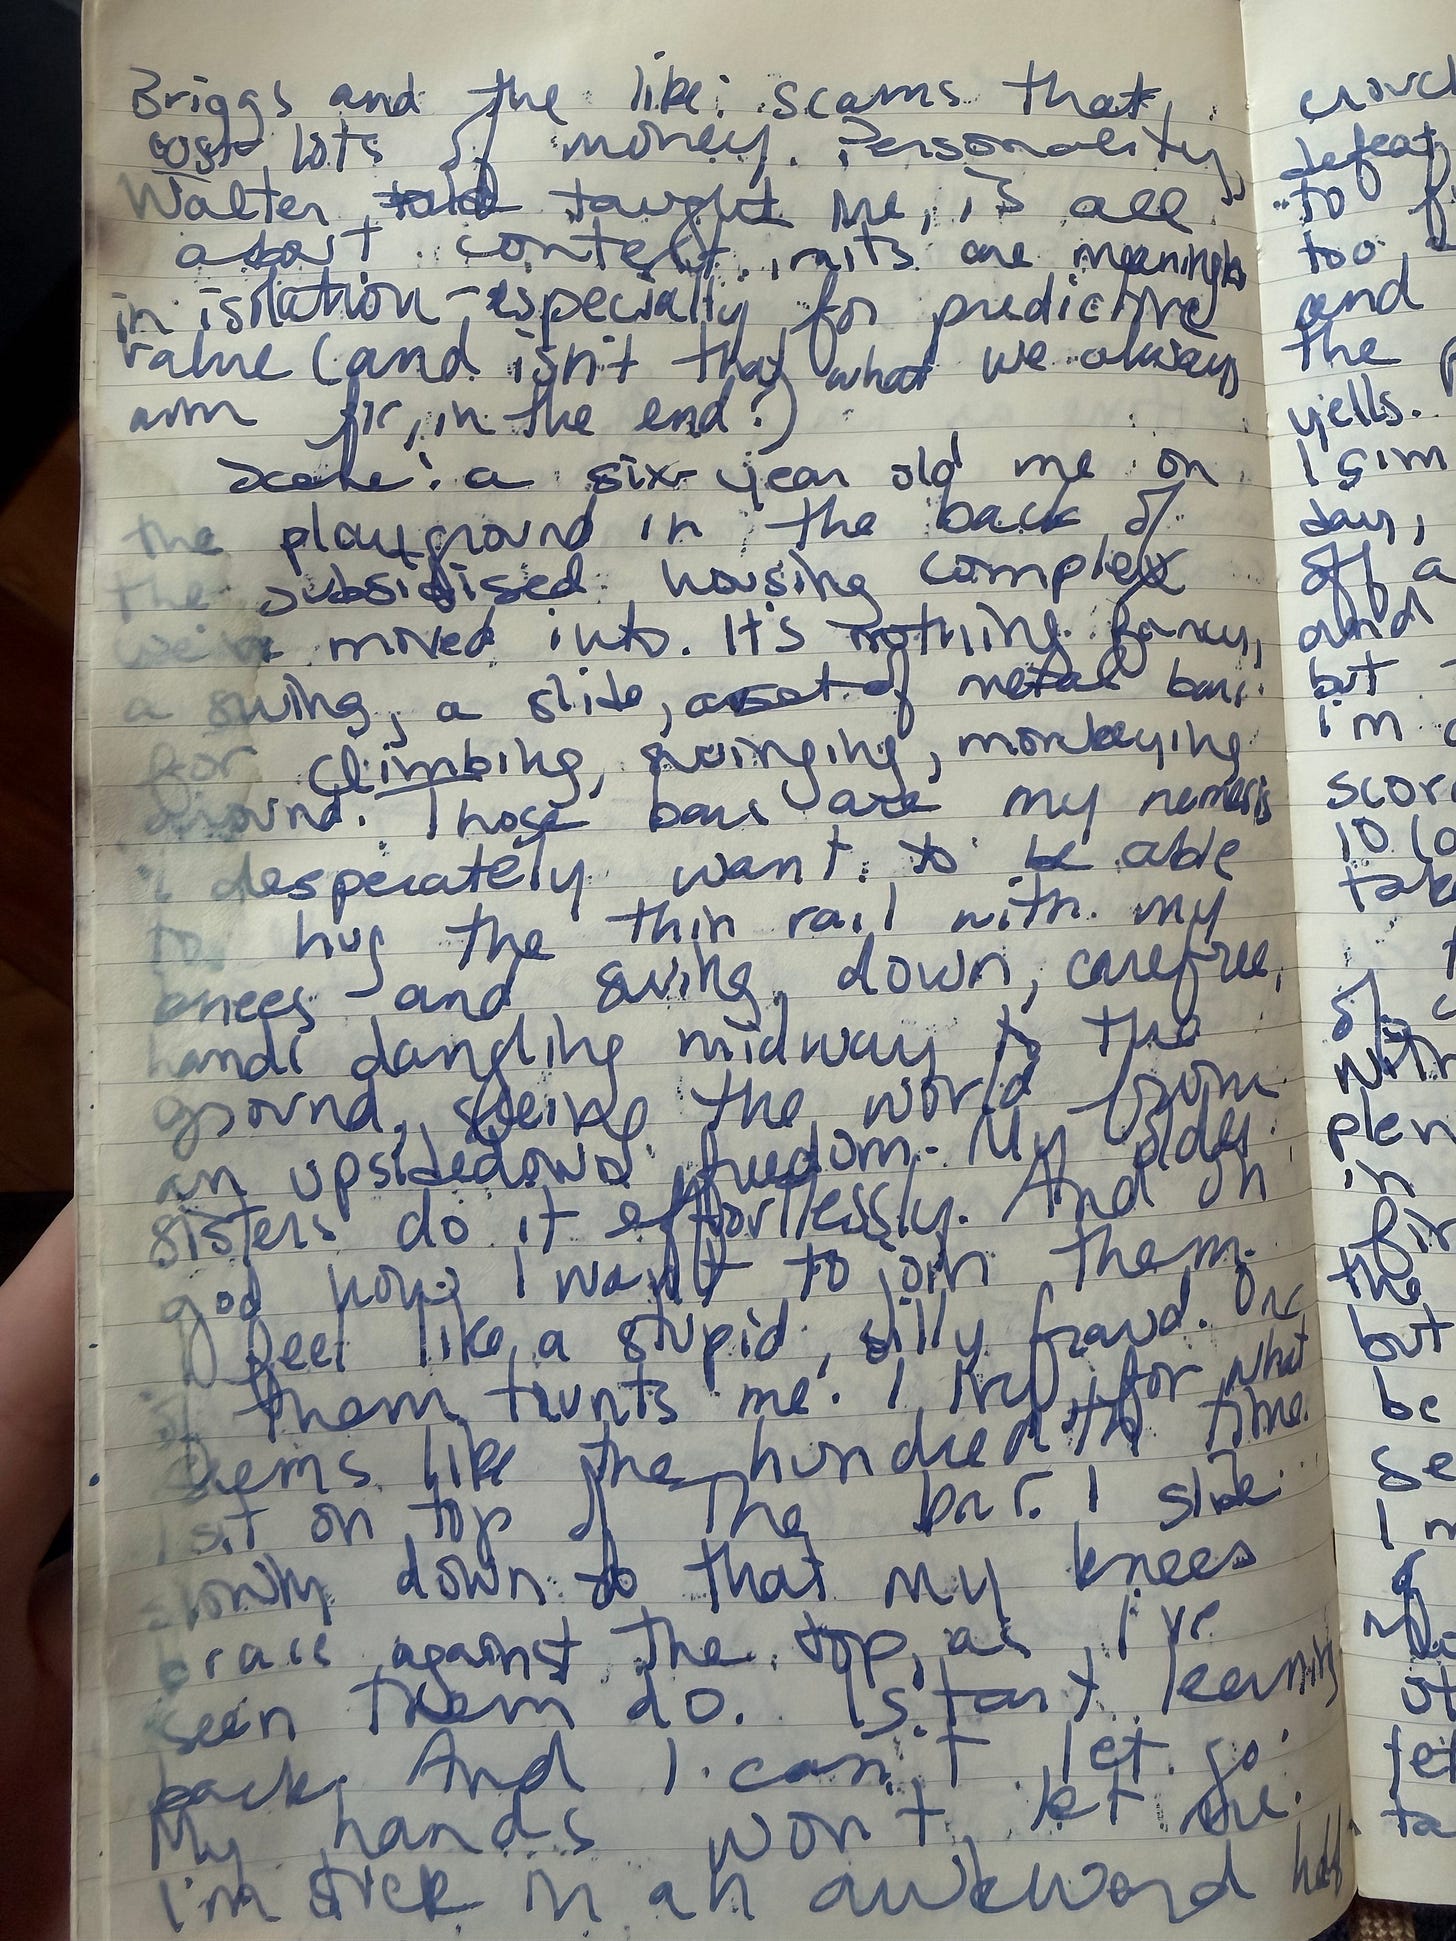 Briggs and the like: scams that
cost lots of money. Personality,
Walter told taught me, is all
about context. Traits are meaningless
in isolation - especially for predictive
value (and isn't that what we always
aim for, in the end?)
Scene: a six-year old me on
the playground in the back of
the subsidised housing complex
we've moved into. It's nothing fancy,
a swing, a slide, a set of metal bars
for climbing, swinging, monkeying
around. Those bars are my nemesis
I desperately want to be able
to hug the thin rail with my
knees and swing down, carefree,
hands dangling midway to the
ground, seeing the world from
an upsidedown freedom. My older
sisters do it effortlessly. And oh
god how I want to join them.
I feel like a stupid, silly fraud. One
of them taunts me. I try for what
seems like the hundredth time.
I sit on top of the bar. I slide
slowly down so that my knees
brace against the top, as I've
seen them do. I start leaning
back. And I can't let go.
My hands won't let me.
I'm stuck in an awkward half
crouch
defeat
to
too
and
the
yells.
I sim
day,
off a
and
but
I'm
score
10
take
of
with
plen
in
fir
the
but
be
se
I
of